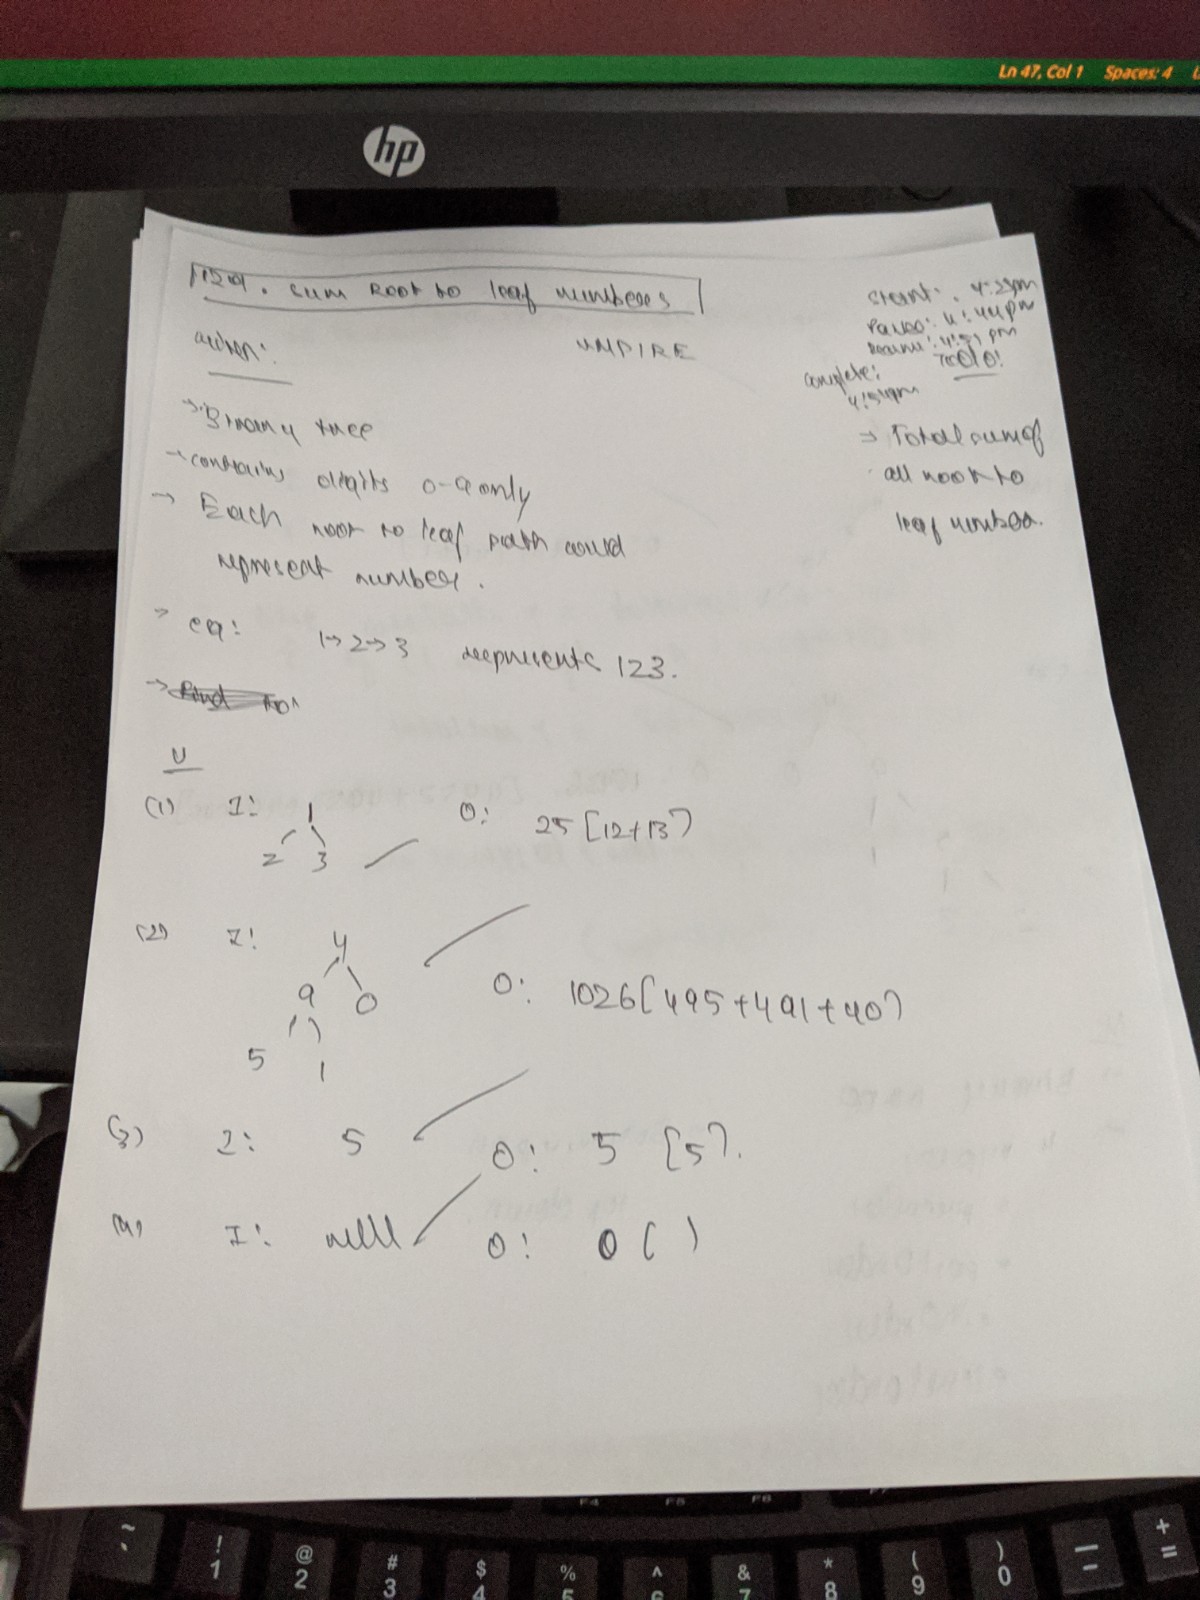 Ln 47, Col 1 Spaces: 4
hp
129. Sum Root to leaf numbers
UMPIRE
Given:
Start: 4:2
Pause: 4:44pm
Resume: 4:51 pm
Complete:
4:54pm
→ Binary tree
→ contains digits 0-9 only
→ Each root to leaf path could
represent number.
→ eg: 1→2→3 represents 123.
→ Find
TODO:
→ Total sum of
all root to
leaf number.
U
(1) I: 1 O: 25 [12+13]
2 3
(2) I: 4
9 0 O: 1026[495+491+40]
5 1
(3) I: 5 O: 5 [5].
(4) I: null O: 0 ( )
F4 F5 F6 F7
~ ! @ # $ % ^ & * ( ) — +
` 1 2 3 4 5 6 7 8 9 0 - =